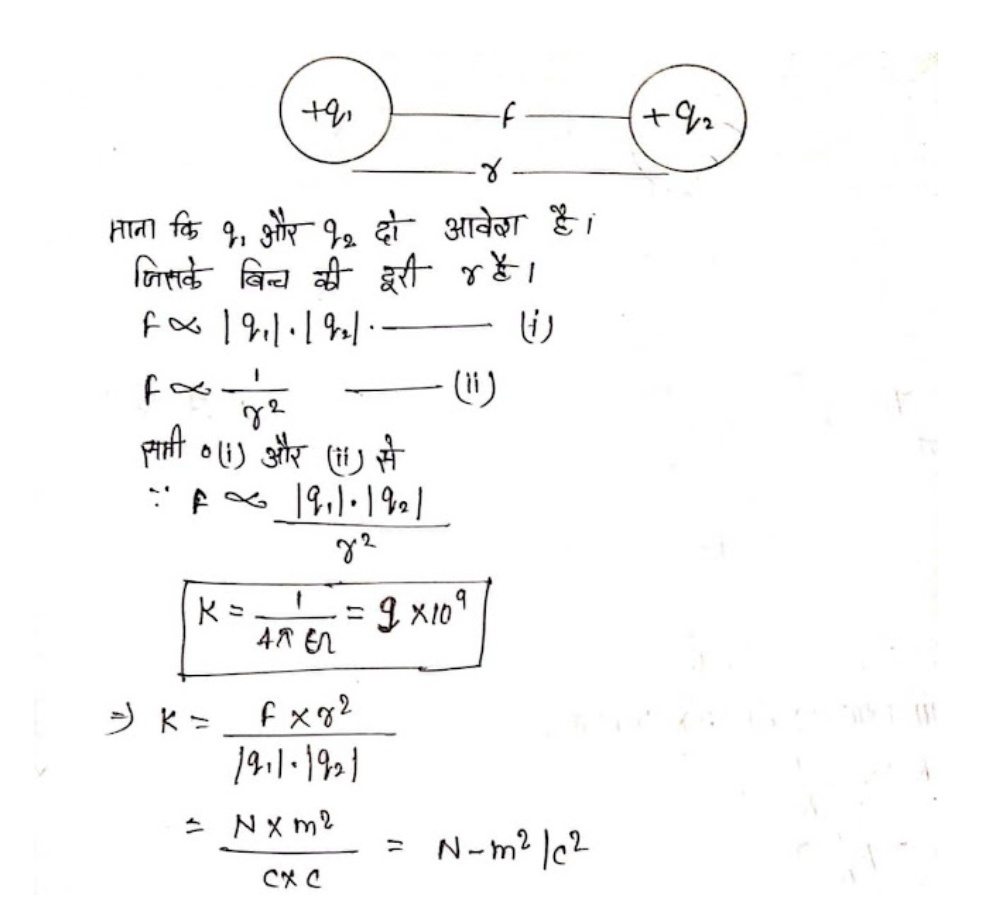 +q₁ f +q₂
r
माना कि q₁ और q₂ दो आवेश है।
जिसके बिच की दूरी r है।
f ∝ |q₁|.|q₂|. —— (i)
f ∝ 1/r² —— (ii)
समी०(i) और (ii) से
∵ F ∝ |q₁|.|q₂| / r²
K = 1/4π ∈ = 9 ×10⁹
⇒ K = f × r² / |q₁|.|q₂|
= N × m² / c × c = N-m²/c²